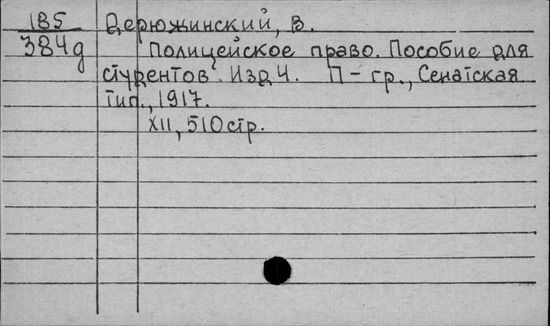 185 Дерюжинский, В.
384д Полицейское право. Пособие для
студентов. Изд 4. П-гр., Сенатская
тип., 1917.
XII, 510 стр.